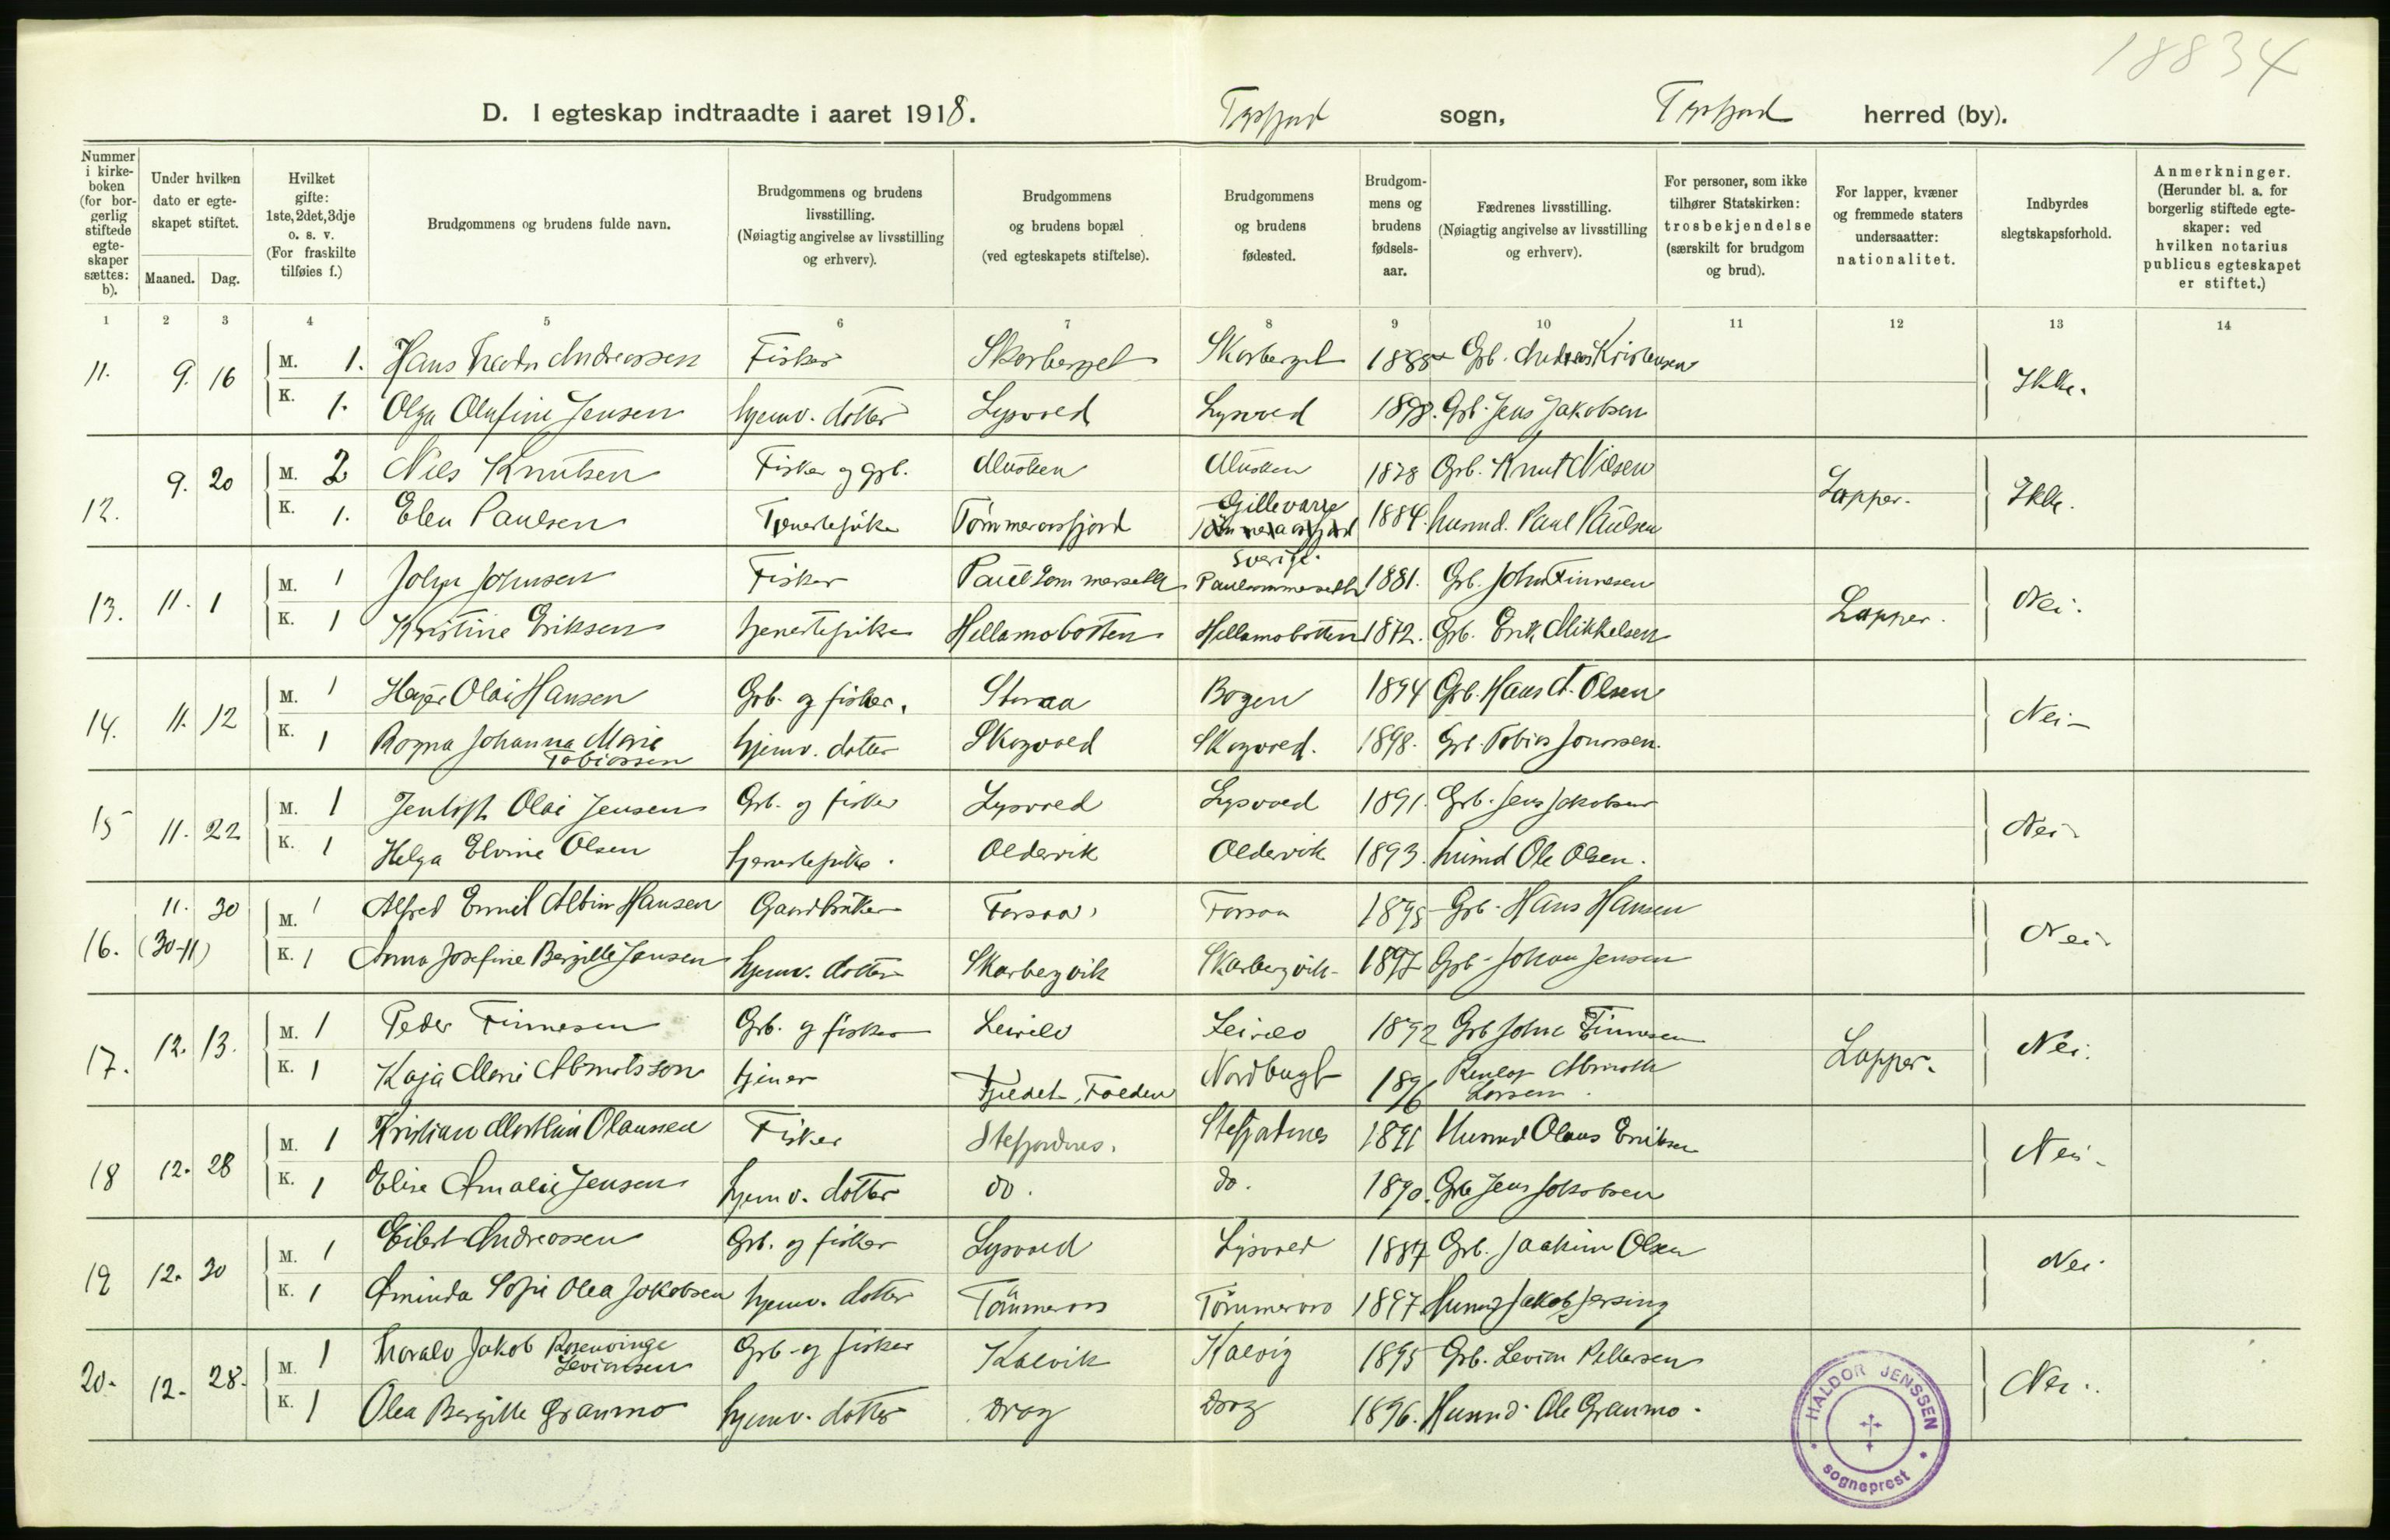 18834
D. I egteskap indtraadte i aaret 1918. Tysfjord sogn, Tysfjord herred (by).
Nummer i kirkeboken (for borgerlig stiftede egteskaper sættes: b).
Under hvilken dato er egteskapet stiftet.
Maaned. Dag.
Hvilket gifte: 1ste, 2det, 3dje o. s. v. (For fraskilte tilføies f.)
Brudgommens og brudens fulde navn.
Brudgommens og brudens livsstilling. (Nøiagtig angivelse av livsstilling og erhverv).
Brudgommens og brudens bopæl (ved egteskapets stiftelse).
Brudgommens og brudens fødested.
Brudgommens og brudens fødselsaar.
Fædrenes livsstilling. (Nøiagtig angivelse av livsstilling og erhverv).
For personer, som ikke tilhører Statskirken: trosbekjendelse (særskilt for brudgom og brud).
For lapper, kvæner og fremmede staters undersaatter: nationalitet.
Indbyrdes slegtskapsforhold.
Anmerkninger. (Herunder bl. a. for borgerlig stiftede egteskaper: ved hvilken notarius publicus egteskapet er stiftet.)
1 2 3 4 5 6 7 8 9 10 11 12 13 14
11. 9. 16 M. 1. Hans Andreassen Fisker Skarberget Skarberget 1888 Grb. Andreas Kristensen Ikke.
K. 1. Olga Olufine Jensen hjemv. dotter Lysvold Lysvold 1898. Grb. Jens Jakobsen
12. 9. 20 M. 2 Nils Knutsen Fisker og grb. Musken Musken 1878 Grb. Knut Nilsen Lapper. Ikke.
K. 1. Elen Paulsen Tjenestepike Tømmeraasfjord Gjillevarre Sverige 1884. husmd. Paul Paulsen
13. 11. 1 M. 1 John Johnsen Fisker Paulsommersæth Paulsommerseth 1881. Grb. John Finnesen Lapper. Nei.
K. 1 Kristine Eriksen tjenestepike Hellamobotten Hellamobotten 1872. Grb. Erik Mikkelsen
14. 11. 12 M. 1 Olai Hansen Grb. og fisker. Storaa Bogen 1894 Grb. Hans A. Olsen Nei
K. 1 Ragna Johanna Marie Tobiassen hjemv. dotter Skogvold Skogvold. 1898. Grb. Tobias Jonassen.
15 11. 22 M. 1 Jentoft Olai Jensen Grb. og fisker Lysvold Lysvold 1891. Grb. Jens Jakobsen Nei
K. 1 Helga Elvine Olsen tjenestepike. Oldervik Oldervik 1893. husmd Ole Olsen.
16. 11. 30 (30-11) M. 1 Alfred Emil Albin Hansen Gaardbruker Forsaa Forsaa 1895 Grb. Hans Hansen Nei
K. 1 Anna Josefine Bergitte Jensen hjemv. dotter Skarbergvik Skarbergvik 1897 Grb. Johan Jensen
17. 12. 13. M. 1 Peder Finnesen Grb. og fisker 1892 Grb John Finnesen Lapper. Nei.
K. 1 Kaja Marie tjener Folden Nordbugt 1896 Larsen.
18 12. 28 M. 1 Kristian Olaussen Fisker Stefjordnes. Stefjordnes 1891 Husmd Olaus Eriksen Nei
K. 1 Elise Amalie Jensen hjemv. dotter do. do. 1890. Grb Jens Jakobsen
19 12. 30 M. 1 Eilert Andreassen Grb. og fisker Lysvold Lysvold 1887 Grb. Joakim Olsen Nei
K. 1 Aminda Sofie Olea Jakobsen hjemv. dotter Tømmeraas Tømmeraas 1897 Husmd Jakob
20. 12. 28. M. 1 Jakob Rosenvinge Leviansen Grb. og fisker Kalvik Kalvig 1895 Grb. Levion Pettersen Nei.
K. 1 Olea Bergitte Granmo hjemv. dotter Drag Drag 1896. Husmd. Ole Granmo.
HALDOR JENSSEN
sogneprest